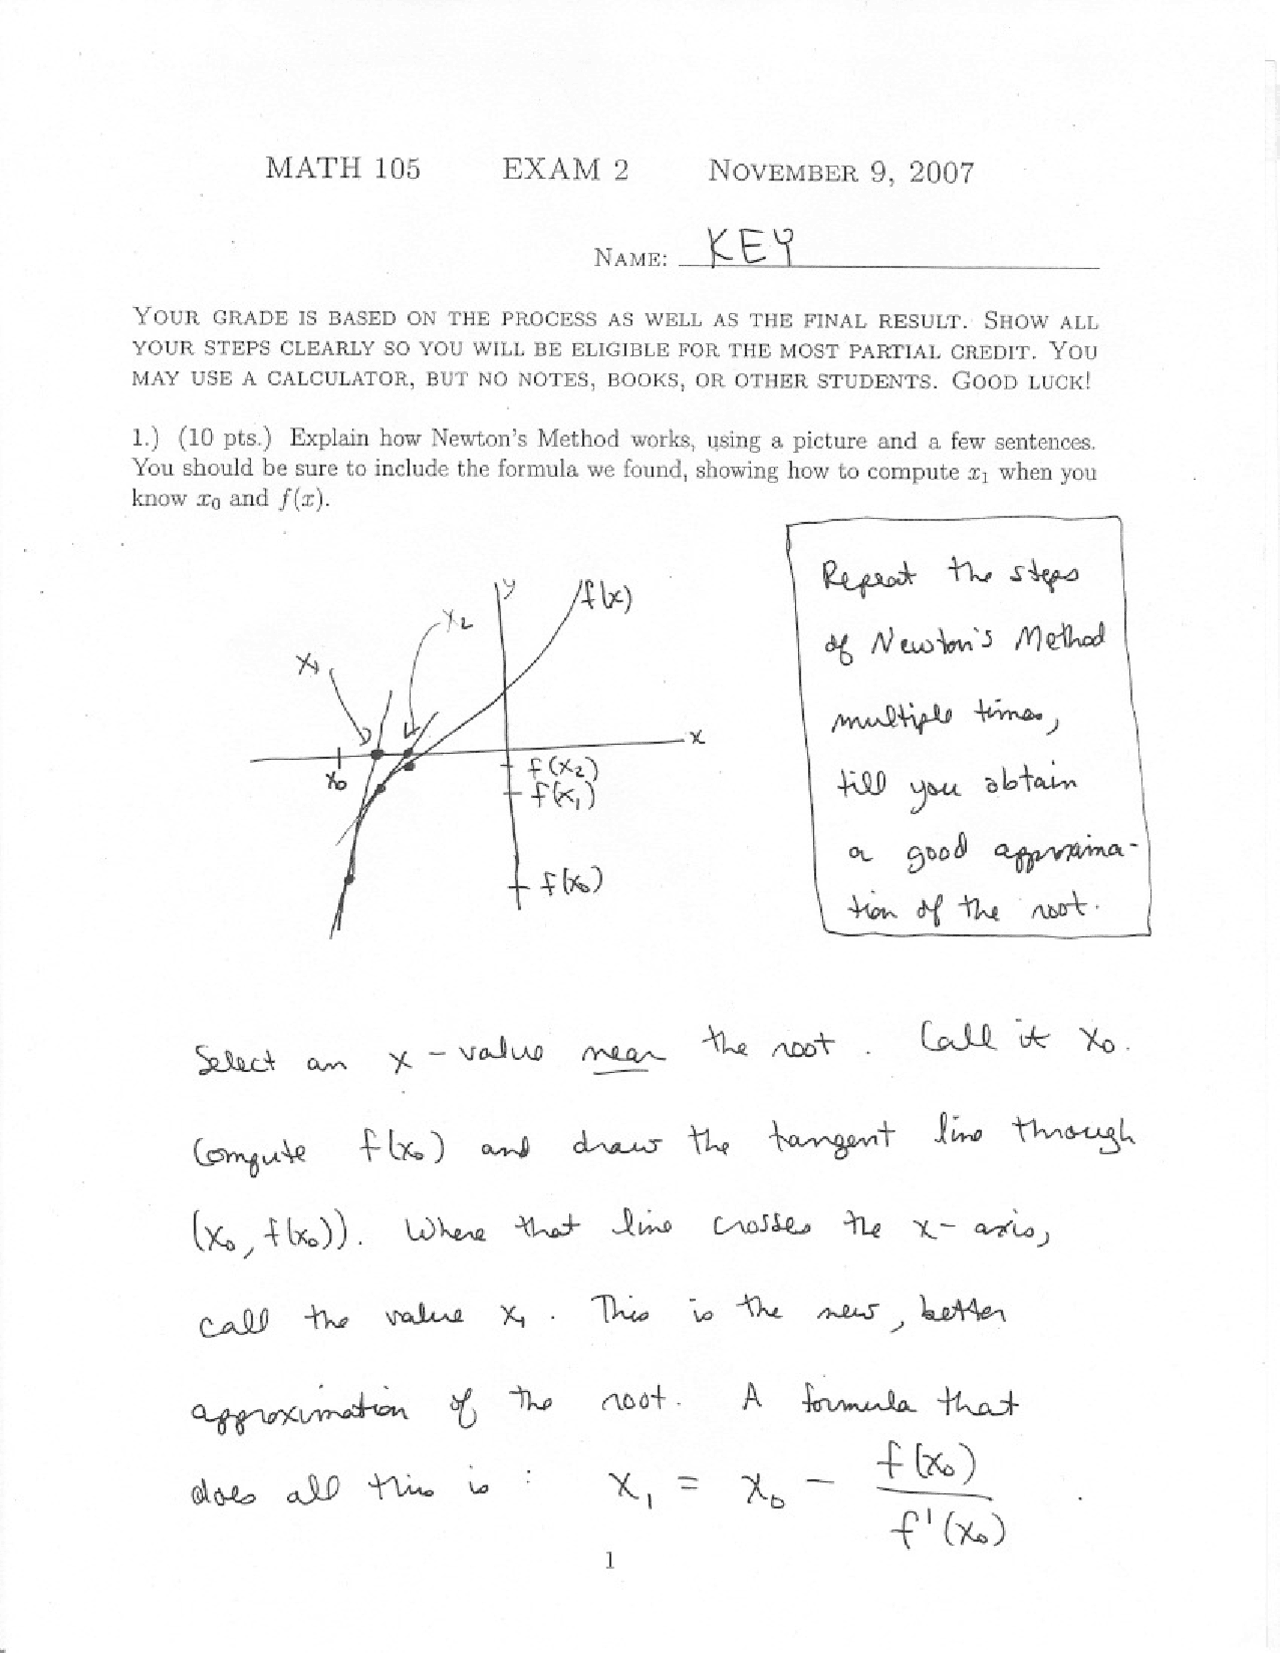 MATH 105 EXAM 2 NOVEMBER 9, 2007
NAME: KEY
YOUR GRADE IS BASED ON THE PROCESS AS WELL AS THE FINAL RESULT. SHOW ALL
YOUR STEPS CLEARLY SO YOU WILL BE ELIGIBLE FOR THE MOST PARTIAL CREDIT. YOU
MAY USE A CALCULATOR, BUT NO NOTES, BOOKS, OR OTHER STUDENTS. GOOD LUCK!
1.) (10 pts.) Explain how Newton's Method works, using a picture and a few sentences.
You should be sure to include the formula we found, showing how to compute x₁ when you
know x₀ and f(x).
y
f(x)
x₂
x₁
x
x₀
f(x₂)
f(x₁)
f(x₀)
Repeat the steps
of Newton's Method
multiple times,
till you obtain
a good approxima-
tion of the root.
Select an x-value near the root. Call it x₀.
Compute f(x₀) and draw the tangent line through
(x₀, f(x₀)). Where that line crosses the x-axis,
call the value x₁. This is the new, better
approximation of the root. A formula that
does all this is: x₁ = x₀ - f(x₀)/f'(x₀).
1